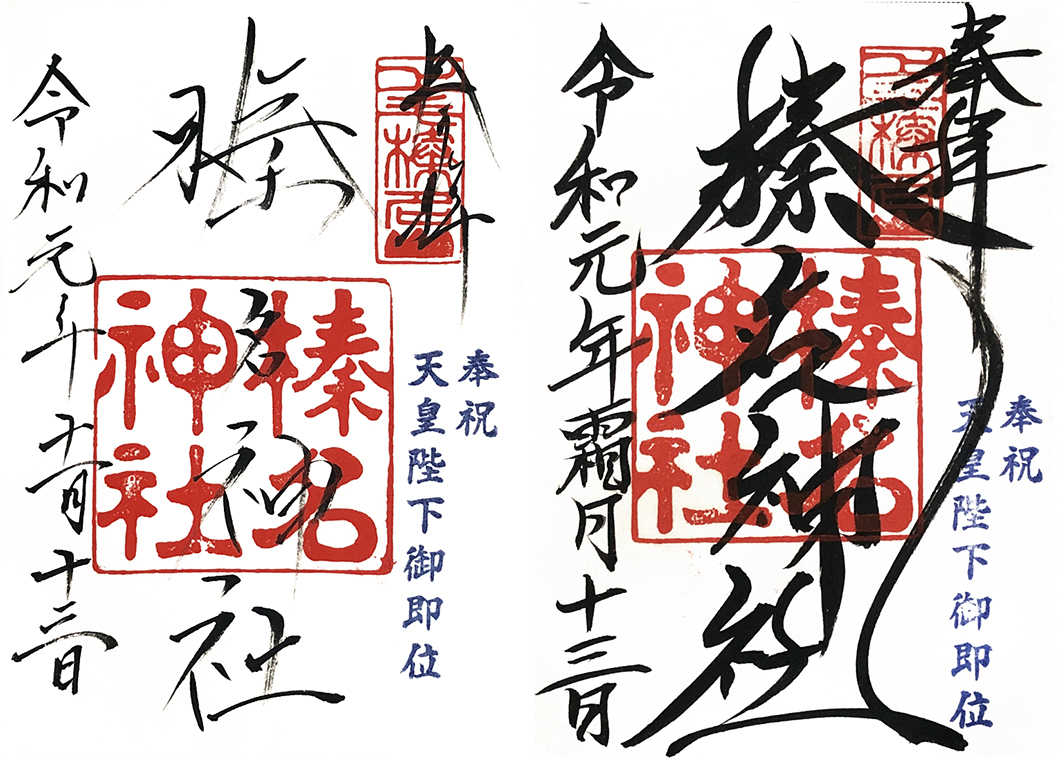 奉拝
奉祝
天皇陛下御即位
榛名神社
榛名
神社
令和元年十一月十三日
奉拝
奉祝
天皇陛下御即位
榛名神社
榛名
神社
令和元年霜月十三日